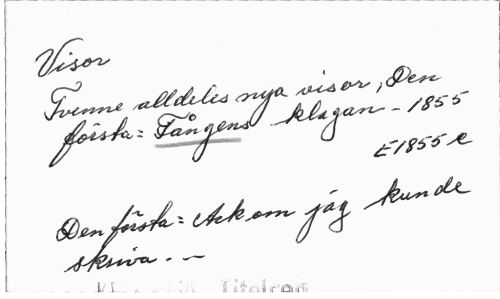 Visor
Tvenne alldeles nya visor, Den
första = Fångens klagan - 1855
E1855e
Den första = Ack om jag kunde
skriva. -
Titelreg